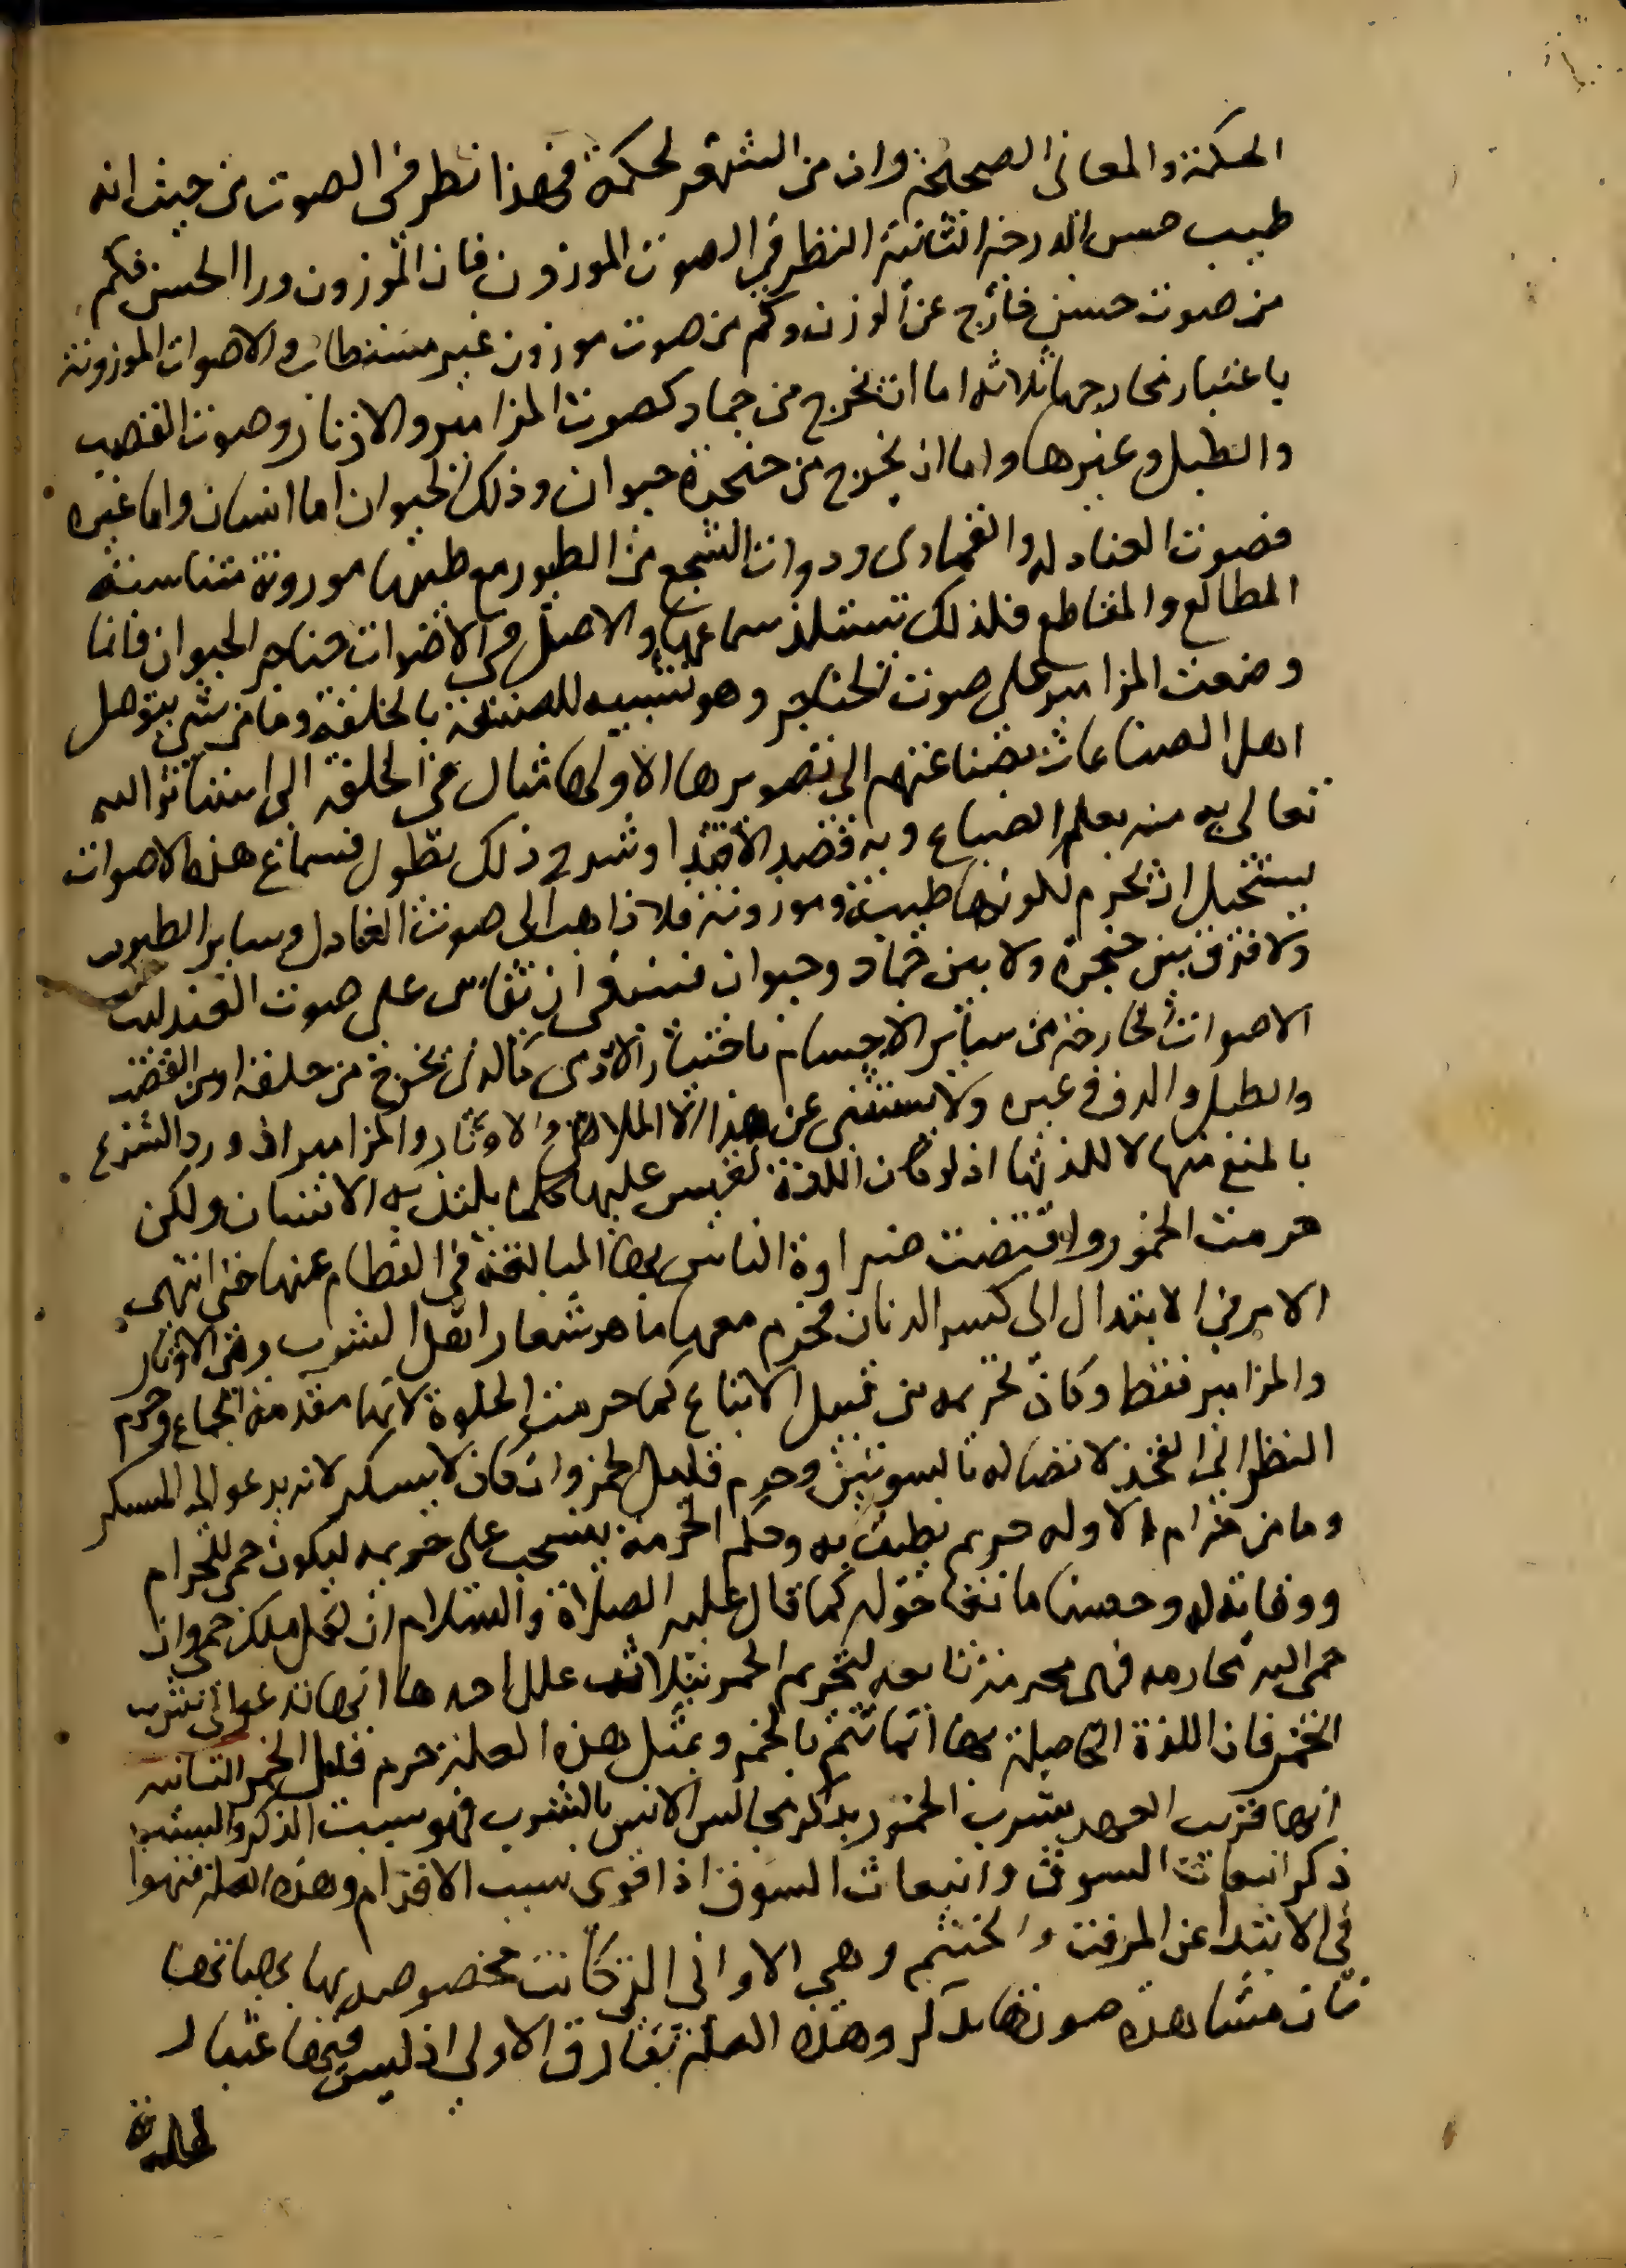 الحكمة والمعانى الصحيحة وان من الشعر لحكمة فهذا نظر فى الصوت من حيث انه
طيب حسن الدرجة الثانية النظر فى الصوت الموزون فان الموزون ورا الحسن فكم
من صوت حسن خارج عن الوزن وكم من صوت موزون غير مستطاب والاصوات الموزونة
باعتبار مخارجها ثلاثه اما ان تخرج من جماد كصوت المزامير والاوتار وصوت القضيب
والطبل وغيرها واما ان يخرج من حنجرة حيوان وذلك الحيوان اما انسان واما غيره
فصوت العنادل والقمارى ودوات السجع من الطيور مع طيبها موزونة متناسبة
المطالع والمقاطع فلذلك تستلذ سماعها والاصل فى الاصوات حناجر الحيوان فانما
وضعت المزامير على صوت الحناجر وهو تشبيه للصنعة بالخلقة وما من شى يتوصل
اهل الصناعات بصناعتهم الى تصويرها الا ولها مثال فى الخلقة التى استاثر الله
تعالى به منه تعلم الصناع وبه قصد الاقتدا وشرح ذلك يطول فسماع هذه الاصوات
يستحيل ان تحرم لكونها طيبة وموزونة فلا ذاهب الى صوت العنادل وساير الطيور
ولا فرق بين حنجرة ولا بين جماد وحيوان فينبغى ان تقاس على صوت العندليب
الاصوات الخارجة من سائر الاجسام باختيار الادمى كالذى يخرج من حلقه او من القضيب
والطبل والدف وغيره ولا يستثنى عن هذا الا الملاهى والاوتار والمزامير اذ ورد الشرع
بالمنع منها لا للذتها اذ لو كان اللذة لقيس عليها كلما يلتذ به الانسان ولكن
حرمت الخمور واقتضت ضراوة الناس بها المبالغة فى الفطام عنها حتى انتهى
الامر فى الابتدا الى كسر الدنان فحرم معها ما هو شعار اهل الشرب وهى الاوتار
والمزامير فقط وكان تحريمه من قبيل الاتباع كما حرمت الخلوة لانها مقدمة الجماع وحرم
النظر الى الفخذ لاتصاله بالسوئتين وحرم قليل الخمر وان كان لا يسكر لانه يدعو الى المسكر
وما من حرام الا وله حريم يطيف به وحكم الحرمة ينسحب على حريمه ليكون حمى للحرام
ووقاية له وحصنا مانعا حوله كما قال عليه الصلاة والسلام ان لكل ملك حمى وان
حمى الله محارمه فهى محرمة تابعه لتحريم الخمر بثلاث علل احدها انها تدعوا الى شرب
الخمر فان اللذة الحاصلة بها انما تتم بالخمر وبمثل هذه العلة حرم قليل الخمر الثانيه
انها قريب العهد بشرب الخمور يذكر مجالس الانس بالشرب فهو سبب الذكر والسبب
ذكر انبعاث السوق وانبعاث السوق اذا قوى سبب الاقدام وهذه العلة فنهوا
فى الابتدا عن المزفت والحنتم وهى الاوانى التى كانت مخصوصه بها
شان مشاهدة صورتها يذكر وهذه العلة تفارق الاولى اذ ليس فيها اعتبار
لذة